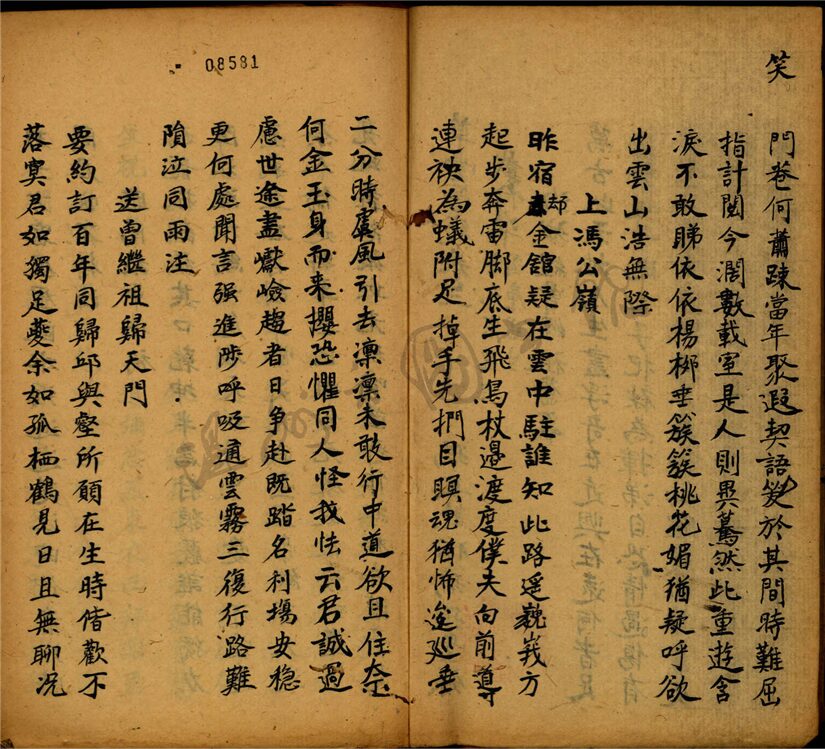 笑
門巷何蕭踈當年聚遐契語笑於其間時難屈
指計閲今濶數載室是人則異驀然此重遊含
淚不敢睇依依楊栁垂簇簇桃花媚猶疑呼欲
出雲山浩無際
上馮公嶺
昨宿却金舘疑在雲中駐誰知此路遥巍峩方
起步奔雷脚底生飛鳥杖邉渡度僕夫向前導
連袂為蟻附足掉手先捫目瞑魂猶怖逡廵垂
二分時虞風引去凜凜未敢行中道欲且住奈
何金玉身而来攖恐懼同人怪我怯云君誠過
慮世途盡巘嶮趨者日争赴既踏名利塲安稳
更何處聞言强進陟呼吸通雲霧三復行路難
隕泣同雨注
送曾繼祖歸天門
要約訂百年同歸邱與壑所願在生時偕歡不
落寞君如獨足夔余如孤栖鶴見日且無聊况
08581